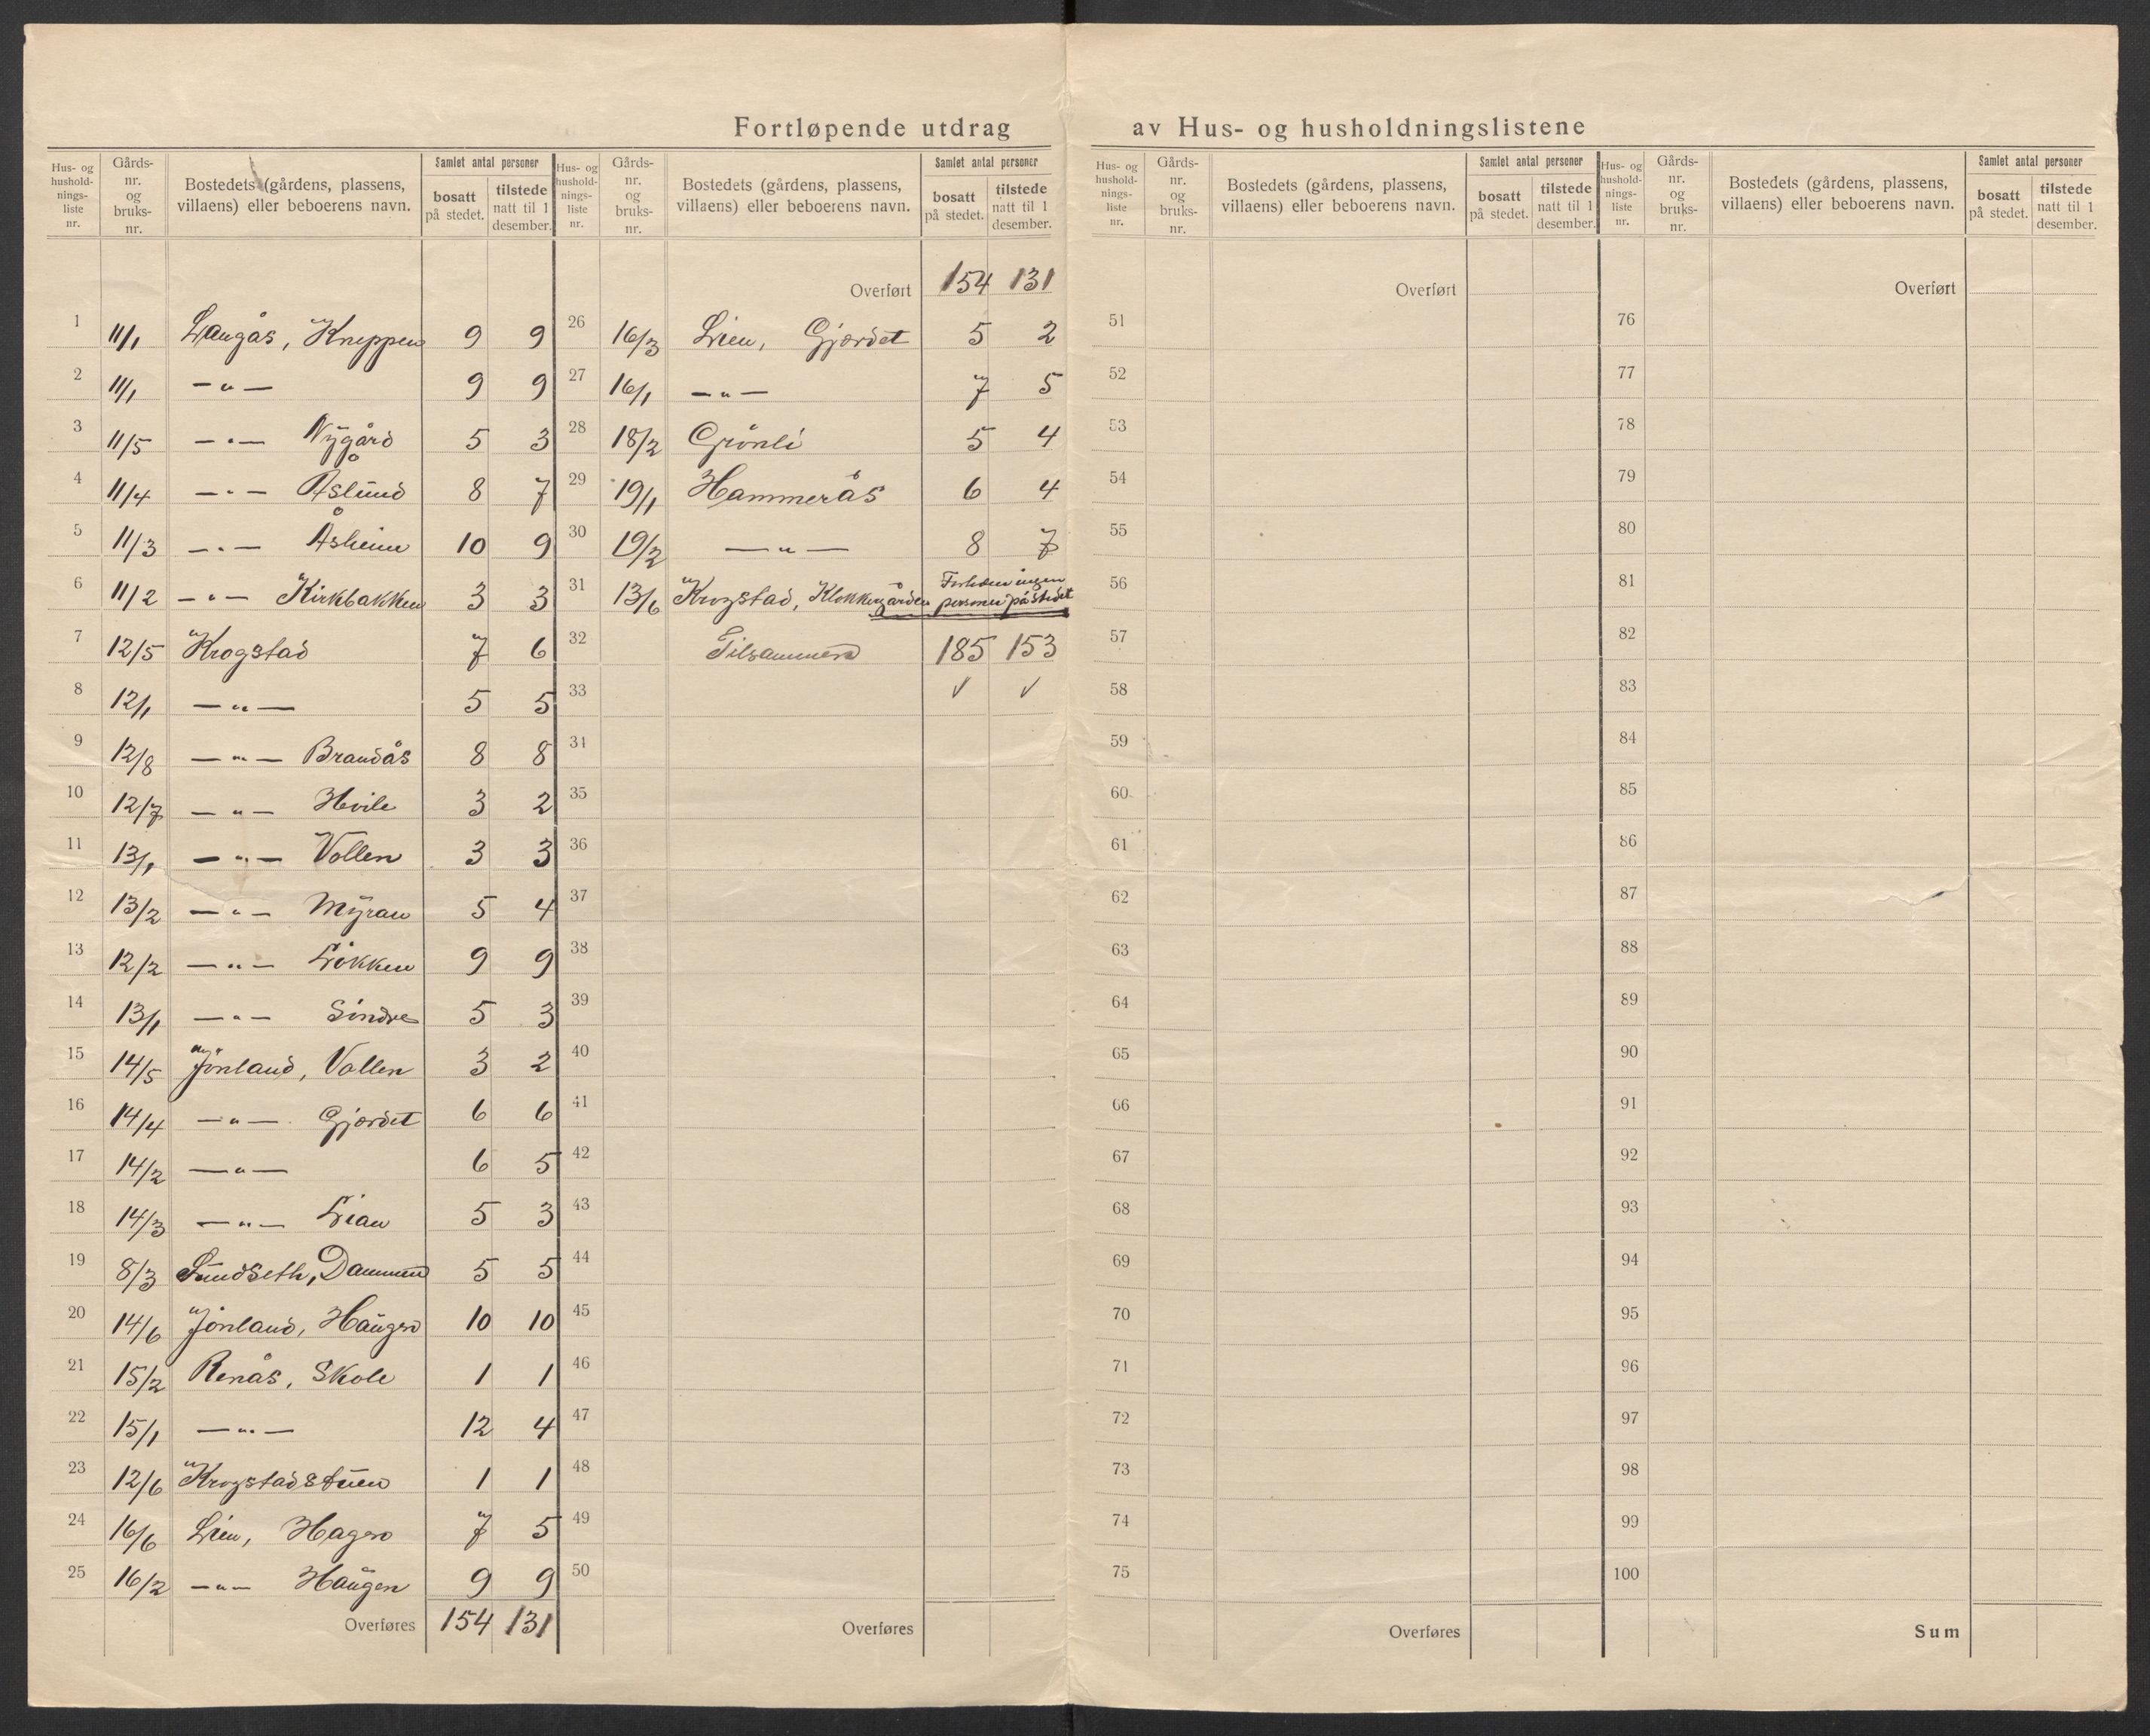 Fortløpende utdrag av Hus- og husholdningslistene
Hus- og husholdnings-liste nr. Gårds-nr. og bruks-nr. Bostedets (gårdens, plassens, villaens) eller beboerens navn. Samlet antal personer bosatt på stedet. tilstede natt til 1 desember.
1 11/1 Langås, Kneppen 9 9
2 11/1 —〃— 9 9
3 11/5 —〃— Nygård 5 3
4 11/4 —〃— Åslund 8 7
5 11/3 —〃— Åsheim 10 9
6 11/2 —〃— Kirkbakken 3 3
7 12/5 Krogstad 7 6
8 12/1 —〃— 5 5
9 12/8 —〃— Brandås 8 8
10 12/7 —〃— Hvile 3 2
11 13/1 —〃— Vollen 3 3
12 13/2 —〃— Myran 5 4
13 12/2 —〃— Løkken 9 9
14 13/1 —〃— Søndre 5 3
15 14/5 Jønland, Vollen 3 2
16 14/4 —〃— Gjordet 6 6
17 14/2 —〃— 6 5
18 14/3 —〃— Lian 5 3
19 8/3 Sundseth, Dammen 5 5
20 14/6 Jønland, Haugen 10 10
21 15/2 Renås, Skole 1 1
22 15/1 —〃— 12 4
23 12/6 Krogstadstuen 1 1
24 16/6 Lien, Hagen 7 5
25 16/2 —〃— Haugen 9 9
Overføres 154 131
Hus- og husholdnings-liste nr. Gårds-nr. og bruks-nr. Bostedets (gårdens, plassens, villaens) eller beboerens navn. Samlet antal personer bosatt på stedet. tilstede natt til 1 desember.
Overført 154 131
26 16/3 Lien, Gjordet 5 2
27 16/1 —〃— 7 5
28 18/2 Grønli 5 4
29 19/1 Hammerås 6 4
30 19/2 —〃— 8 7
31 13/6 Krogstad, Klokkergården ingen personer på stedet
32 Tilsammen 185 153
33 ✓ ✓
31
35
36
37
38
39
40
41
42
43
44
45
46
47
48
49
50
Overføres
Hus- og husholdnings-liste nr. Gårds-nr. og bruks-nr. Bostedets (gårdens, plassens, villaens) eller beboerens navn. Samlet antal personer bosatt på stedet. tilstede natt til 1 desember.
Overført
51
52
53
54
55
56
57
58
59
60
61
62
63
64
65
66
67
68
69
70
71
72
73
74
75
Overføres
Hus- og husholdnings-liste nr. Gårds-nr. og bruks-nr. Bostedets (gårdens, plassens, villaens) eller beboerens navn. Samlet antal personer bosatt på stedet. tilstede natt til 1 desember.
Overført
76
77
78
79
80
81
82
83
84
85
86
87
88
89
90
91
92
93
94
95
96
97
98
99
100
Sum